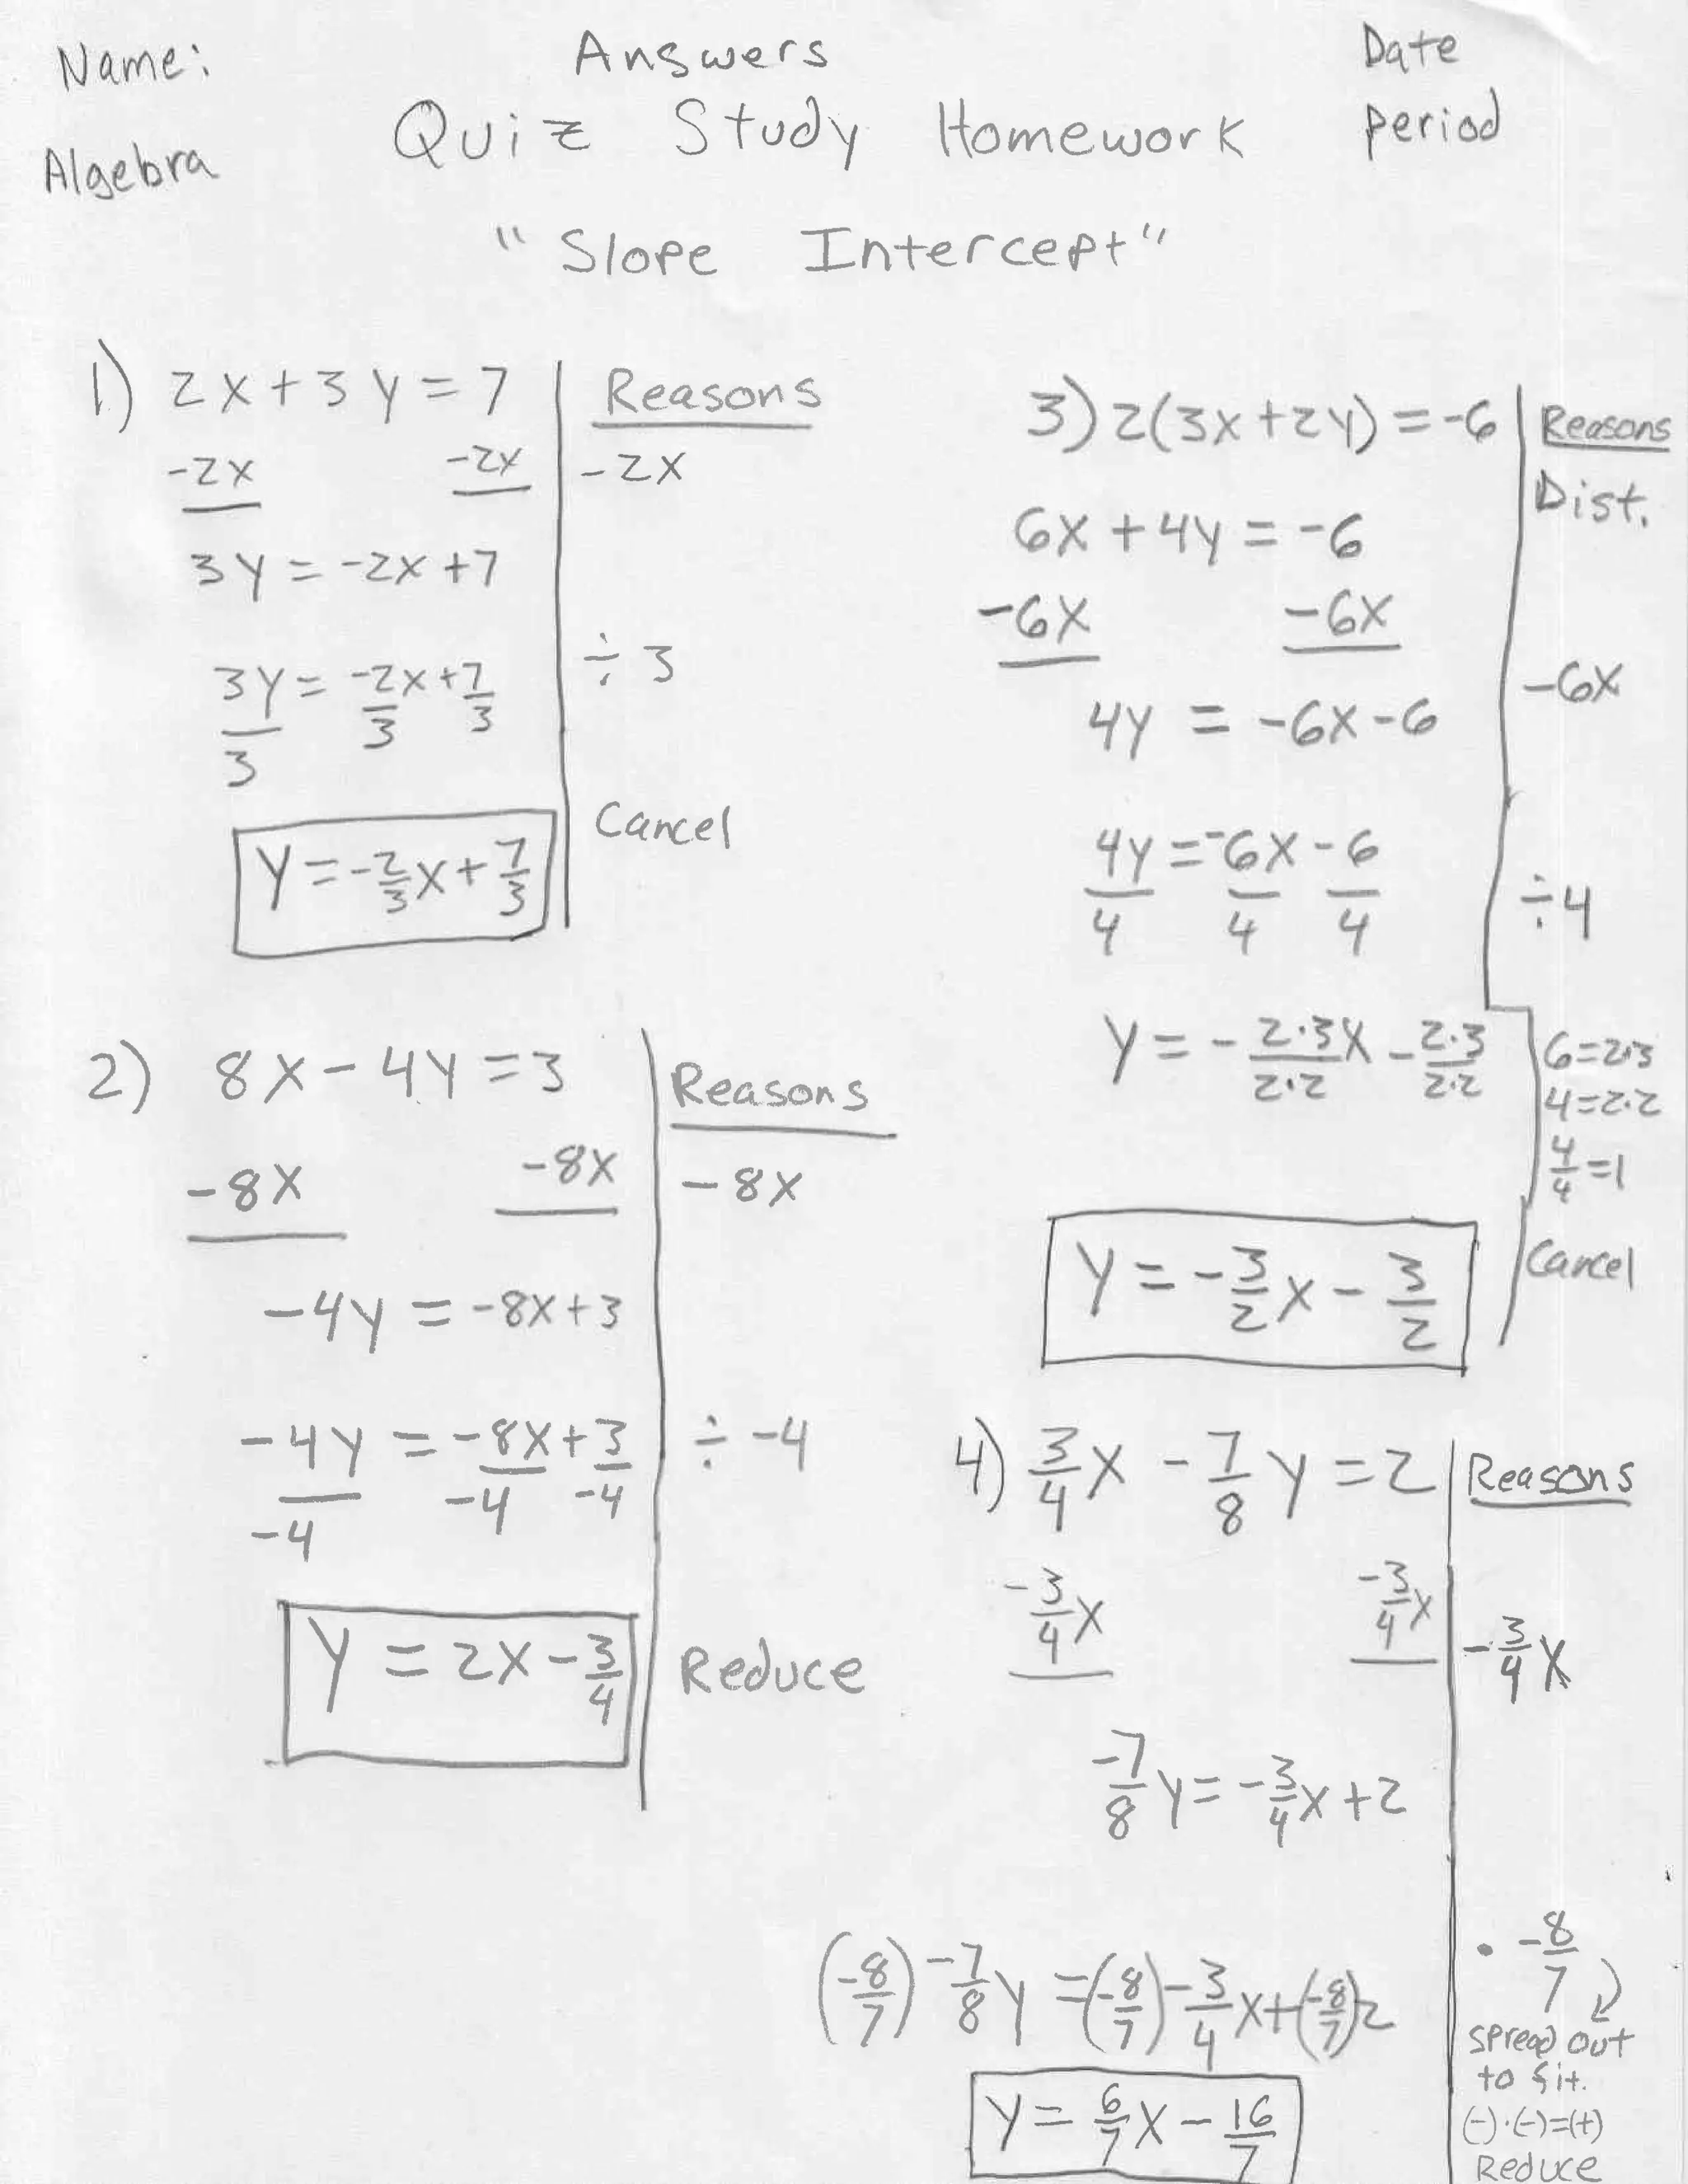 Name: Answers Date
Algebra Quiz Study Homework period
"Slope Intercept"
1) 2x+3y=7 Reasons
-2x -2x -2x
3y=-2x+7
3y/3=-2x/3+7/3 ÷3
y=-2/3x+7/3 Cancel
2) 8x-4y=3 Reasons
-8x -8x -8x
-4y=-8x+3
-4y/-4=-8x/-4+3/-4 ÷-4
y=2x-3/4 Reduce
3) 2(3x+2y)=-6 Reasons
6x+4y=-6 Dist.
-6x -6x
4y=-6x-6 -6x
4y/4=-6x/4-6/4 ÷4
y=-2·3/2·2x-2·3/2·2 6=2·3
4=2·2
4/4=1
y=-3/2x-3/2 Cancel
4) 3/4x-7/8y=2 Reasons
-3/4x -3/4x -3/4x
-7/8y=-3/4x+2
(-8/7)-7/8y=(-8/7)-3/4x+(-8/7)2 · -8/7
spread out
to fit.
y=6/7x-16/7 (-)·(-)=(+)
Reduce